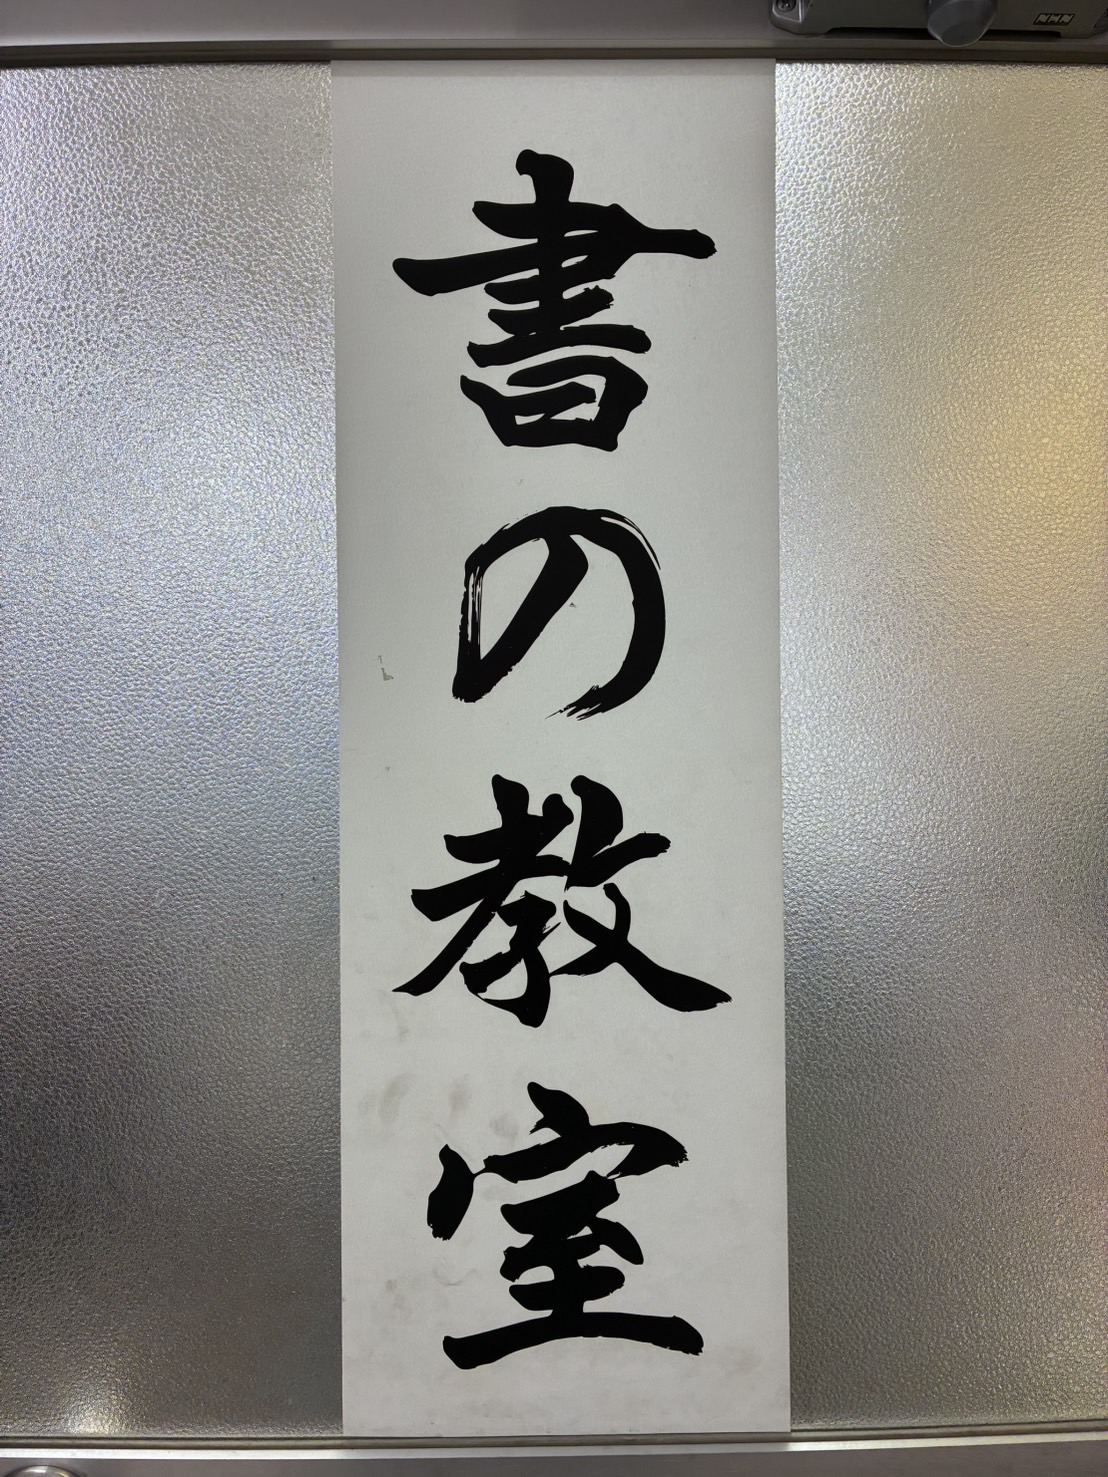 書の教室